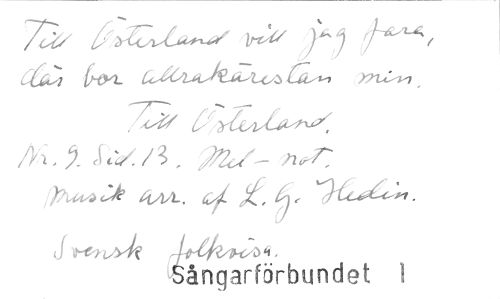 Till Österland vill jag fara,
där bor allrakärestan min.
Till Österland.
Nr. 9. Sid. 13. Mel-not.
musik arr. af L. G. Hedin.
Svensk folkvisa.
Sångarförbundet 1